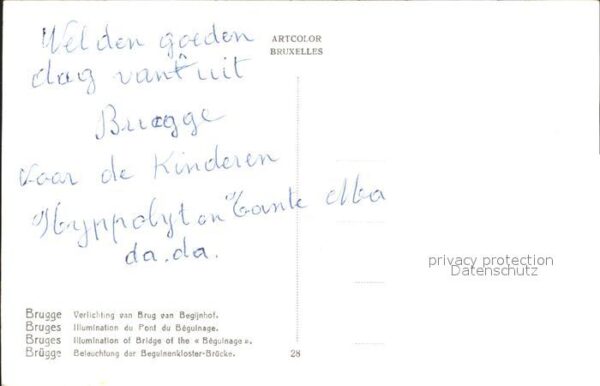 Wel den goeden
dag vant uit
Brugge
voor de Kinderen
Hyppolyt en Tante Ma
da.da.
ARTCOLOR
BRUXELLES
privacy protection
Datenschutz
Brugge Verlichting van Brug van Begijnhof.
Bruges Illumination du Pont du Béguinage.
Bruges Illumination of Bridge of the « Béguinage ».
Brügge Beleuchtung der Beguinenkloster-Brücke.
28